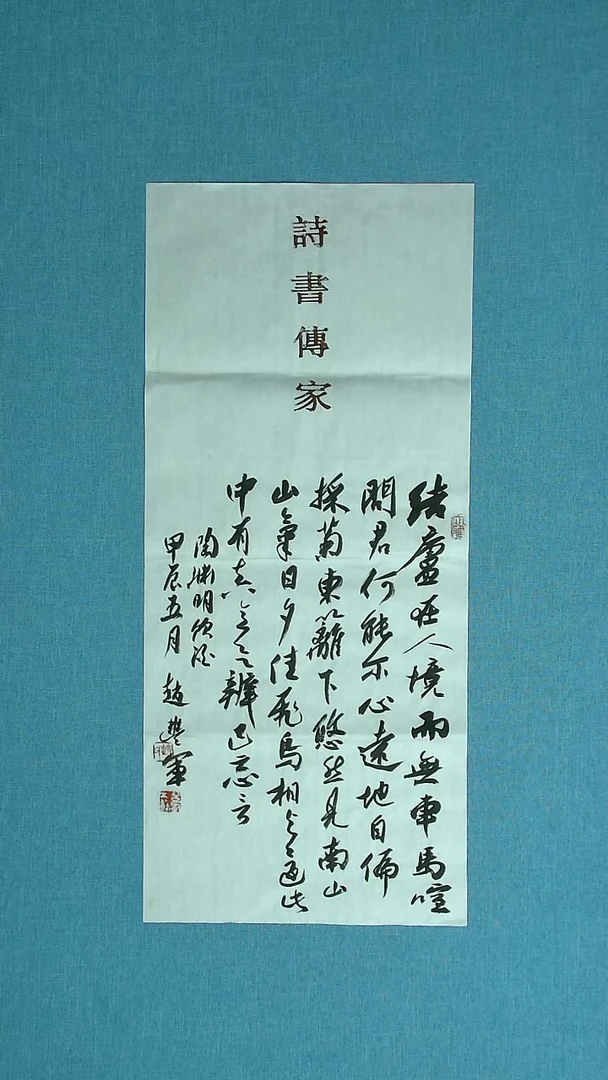 詩書傳家
结廬在人境而無車馬喧
問君何能尔心遠地自偏
採菊東籬下悠然見南山
山氣日夕佳飛鳥相与還此
中有真意欲辨已忘言
陶渊明饮酒
甲辰五月 趙軍